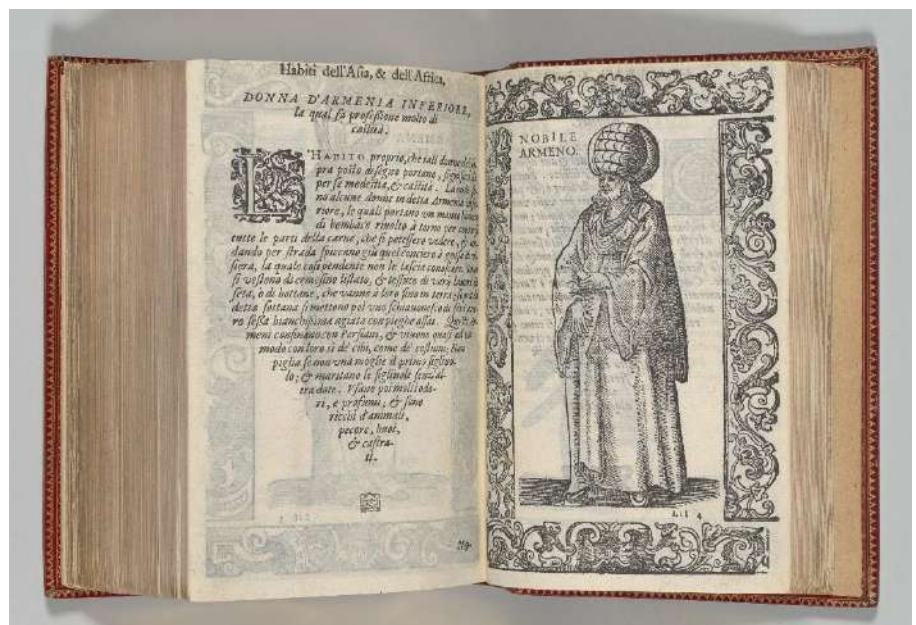 Habiti dell'Asia, & dell'Africa,
DONNA D'ARMENIA INFERIORE,
la qual fà professione molto di
castità.
L'HABITO proprio, che tali donne di so-
pra posto disegno portano, significa
per se modestia, & castità.
no alcune donne in detta Armenia infe-
riore, le quali portano un manto bianco
di bombace rivolto à torno per coprir
tutte le parti della carne, che si potessero vedere, &
dando per strada spiccano giù quel conciero à guisa di
siera, la quale così pendente non le lascia conoscere.
si vestono di ermesino listato, & tessuto di varii lavori
seta, o di bottane, che vanno à loro sino in terra;
detta sottana si mettono poi uno schiavonesco di
ro sessa bianchissima agiata con pieghe assai. Questi Ar-
meni confinano con Persiani, & vivono quasi al
modo con loro sì de' cibi, come de' costumi;
piglia se non una moglie il primo figliuo-
lo; & maritano le figliuole senz'al-
tra dote. Usano poi molti odo-
ri, e profumi; & sono
ricchi d'animali,
pecore, buoi,
& castra-
ti.
NOBILE
ARMENO.